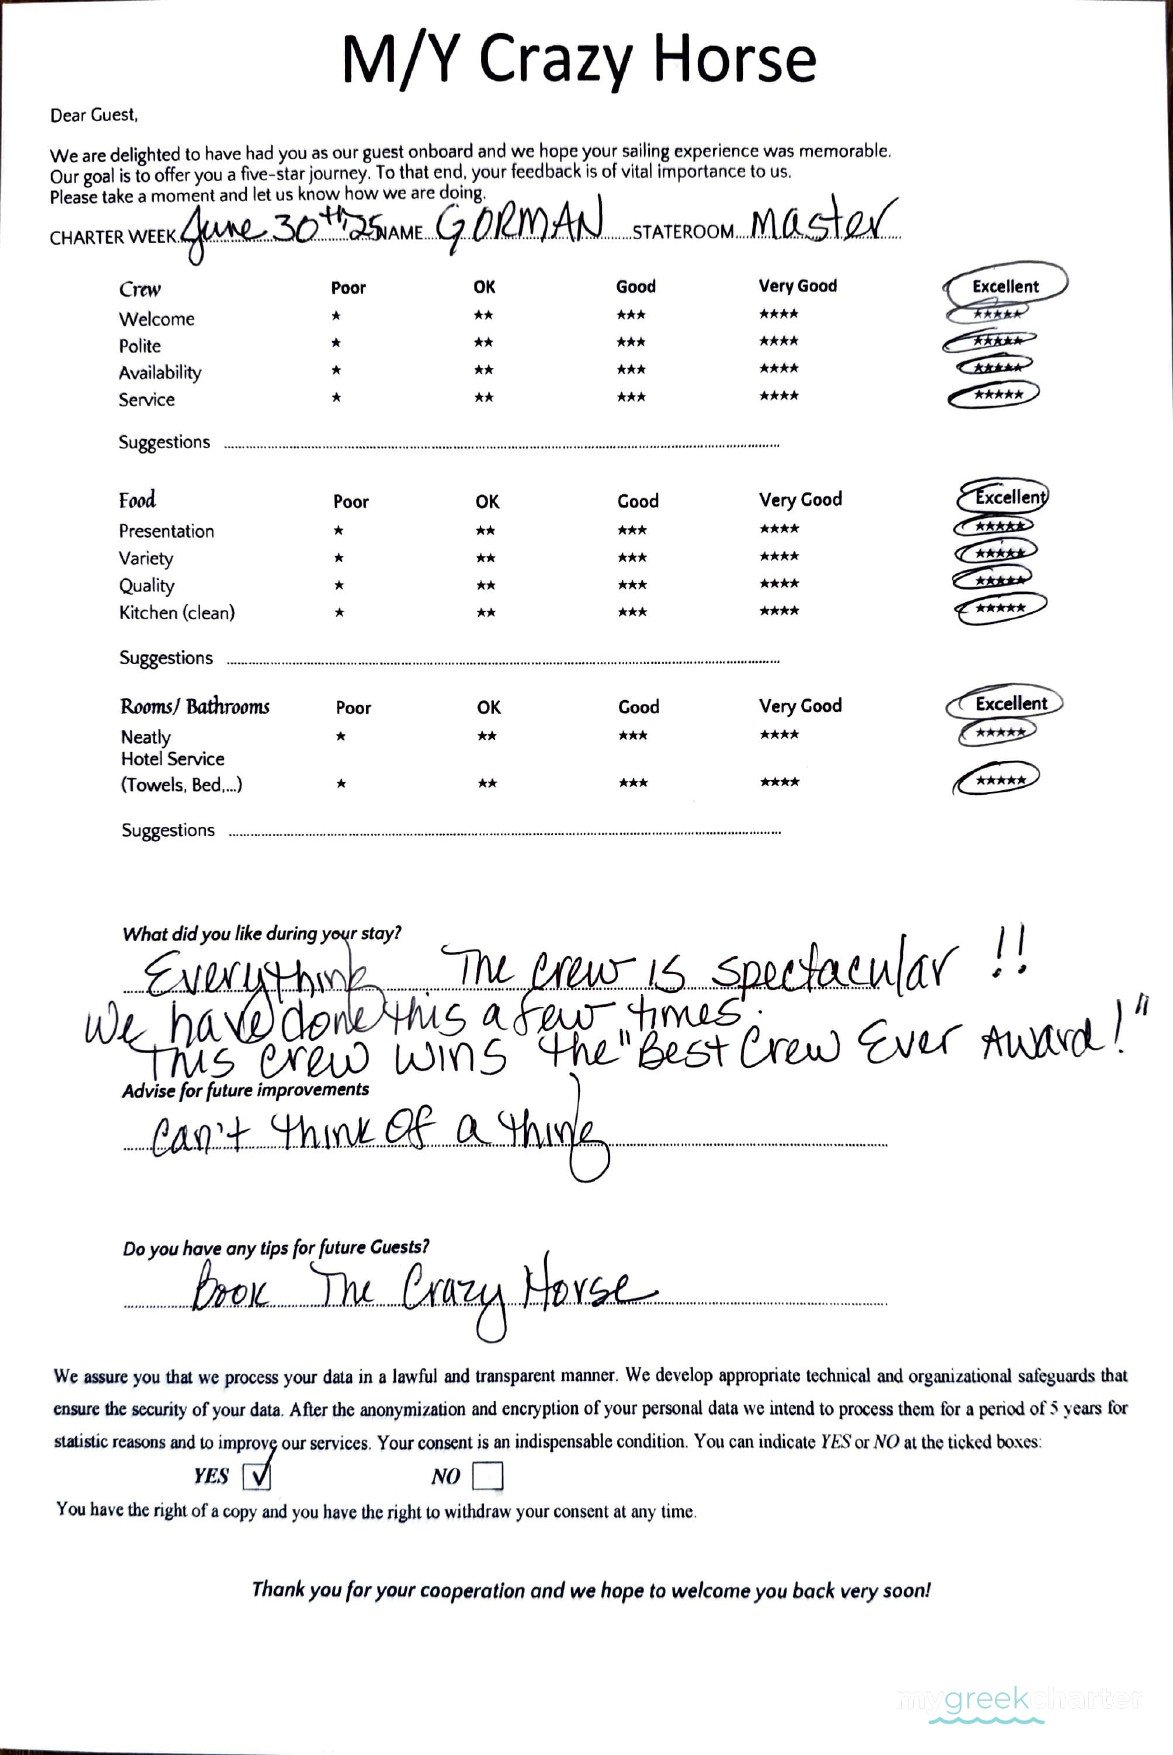 M/Y Crazy Horse
Dear Guest,
We are delighted to have had you as our guest onboard and we hope your sailing experience was memorable.
Our goal is to offer you a five-star journey. To that end, your feedback is of vital importance to us.
Please take a moment and let us know how we are doing.
CHARTER WEEK June 30th, 25 NAME GORMAN STATEROOM Master
Crew Poor OK Good Very Good Excellent
Welcome ★ ★★ ★★★ ★★★★ ★★★★★
Polite ★ ★★ ★★★ ★★★★ ★★★★★
Availability ★ ★★ ★★★ ★★★★ ★★★★★
Service ★ ★★ ★★★ ★★★★ ★★★★★
Suggestions
Food Poor OK Good Very Good Excellent
Presentation ★ ★★ ★★★ ★★★★ ★★★★★
Variety ★ ★★ ★★★ ★★★★ ★★★★★
Quality ★ ★★ ★★★ ★★★★ ★★★★★
Kitchen (clean) ★ ★★ ★★★ ★★★★ ★★★★★
Suggestions
Rooms/ Bathrooms Poor OK Good Very Good Excellent
Neatly ★ ★★ ★★★ ★★★★ ★★★★★
Hotel Service
(Towels, Bed,...) ★ ★★ ★★★ ★★★★ ★★★★★
Suggestions
What did you like during your stay?
Everything The crew is spectacular !!
We have done this a few times.
This crew wins the "Best Crew Ever Award!"
Advise for future improvements
Can't think of a thing
Do you have any tips for future Guests?
Book The Crazy Horse
We assure you that we process your data in a lawful and transparent manner. We develop appropriate technical and organizational safeguards that
ensure the security of your data. After the anonymization and encryption of your personal data we intend to process them for a period of 5 years for
statistic reasons and to improve our services. Your consent is an indispensable condition. You can indicate YES or NO at the ticked boxes:
YES ☑ NO ☐
You have the right of a copy and you have the right to withdraw your consent at any time.
Thank you for your cooperation and we hope to welcome you back very soon!
mygreekcharter